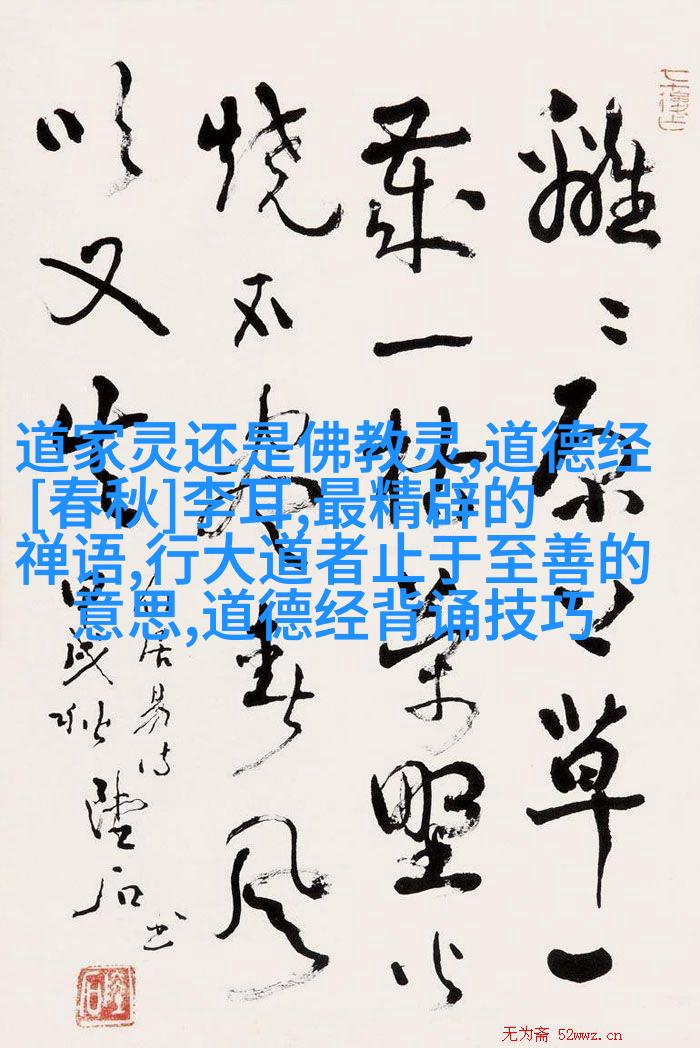 離〻原上草一
歲一枯榮野火
燒不盡春風
吹又生
白居易诗
歲秋
石书
道家灵还是佛教灵,道德经
[春秋]李耳,最精辟的
禅语,行大道者止于至善的
意思,道德经背诵技巧
无为斋 52wwz.cn